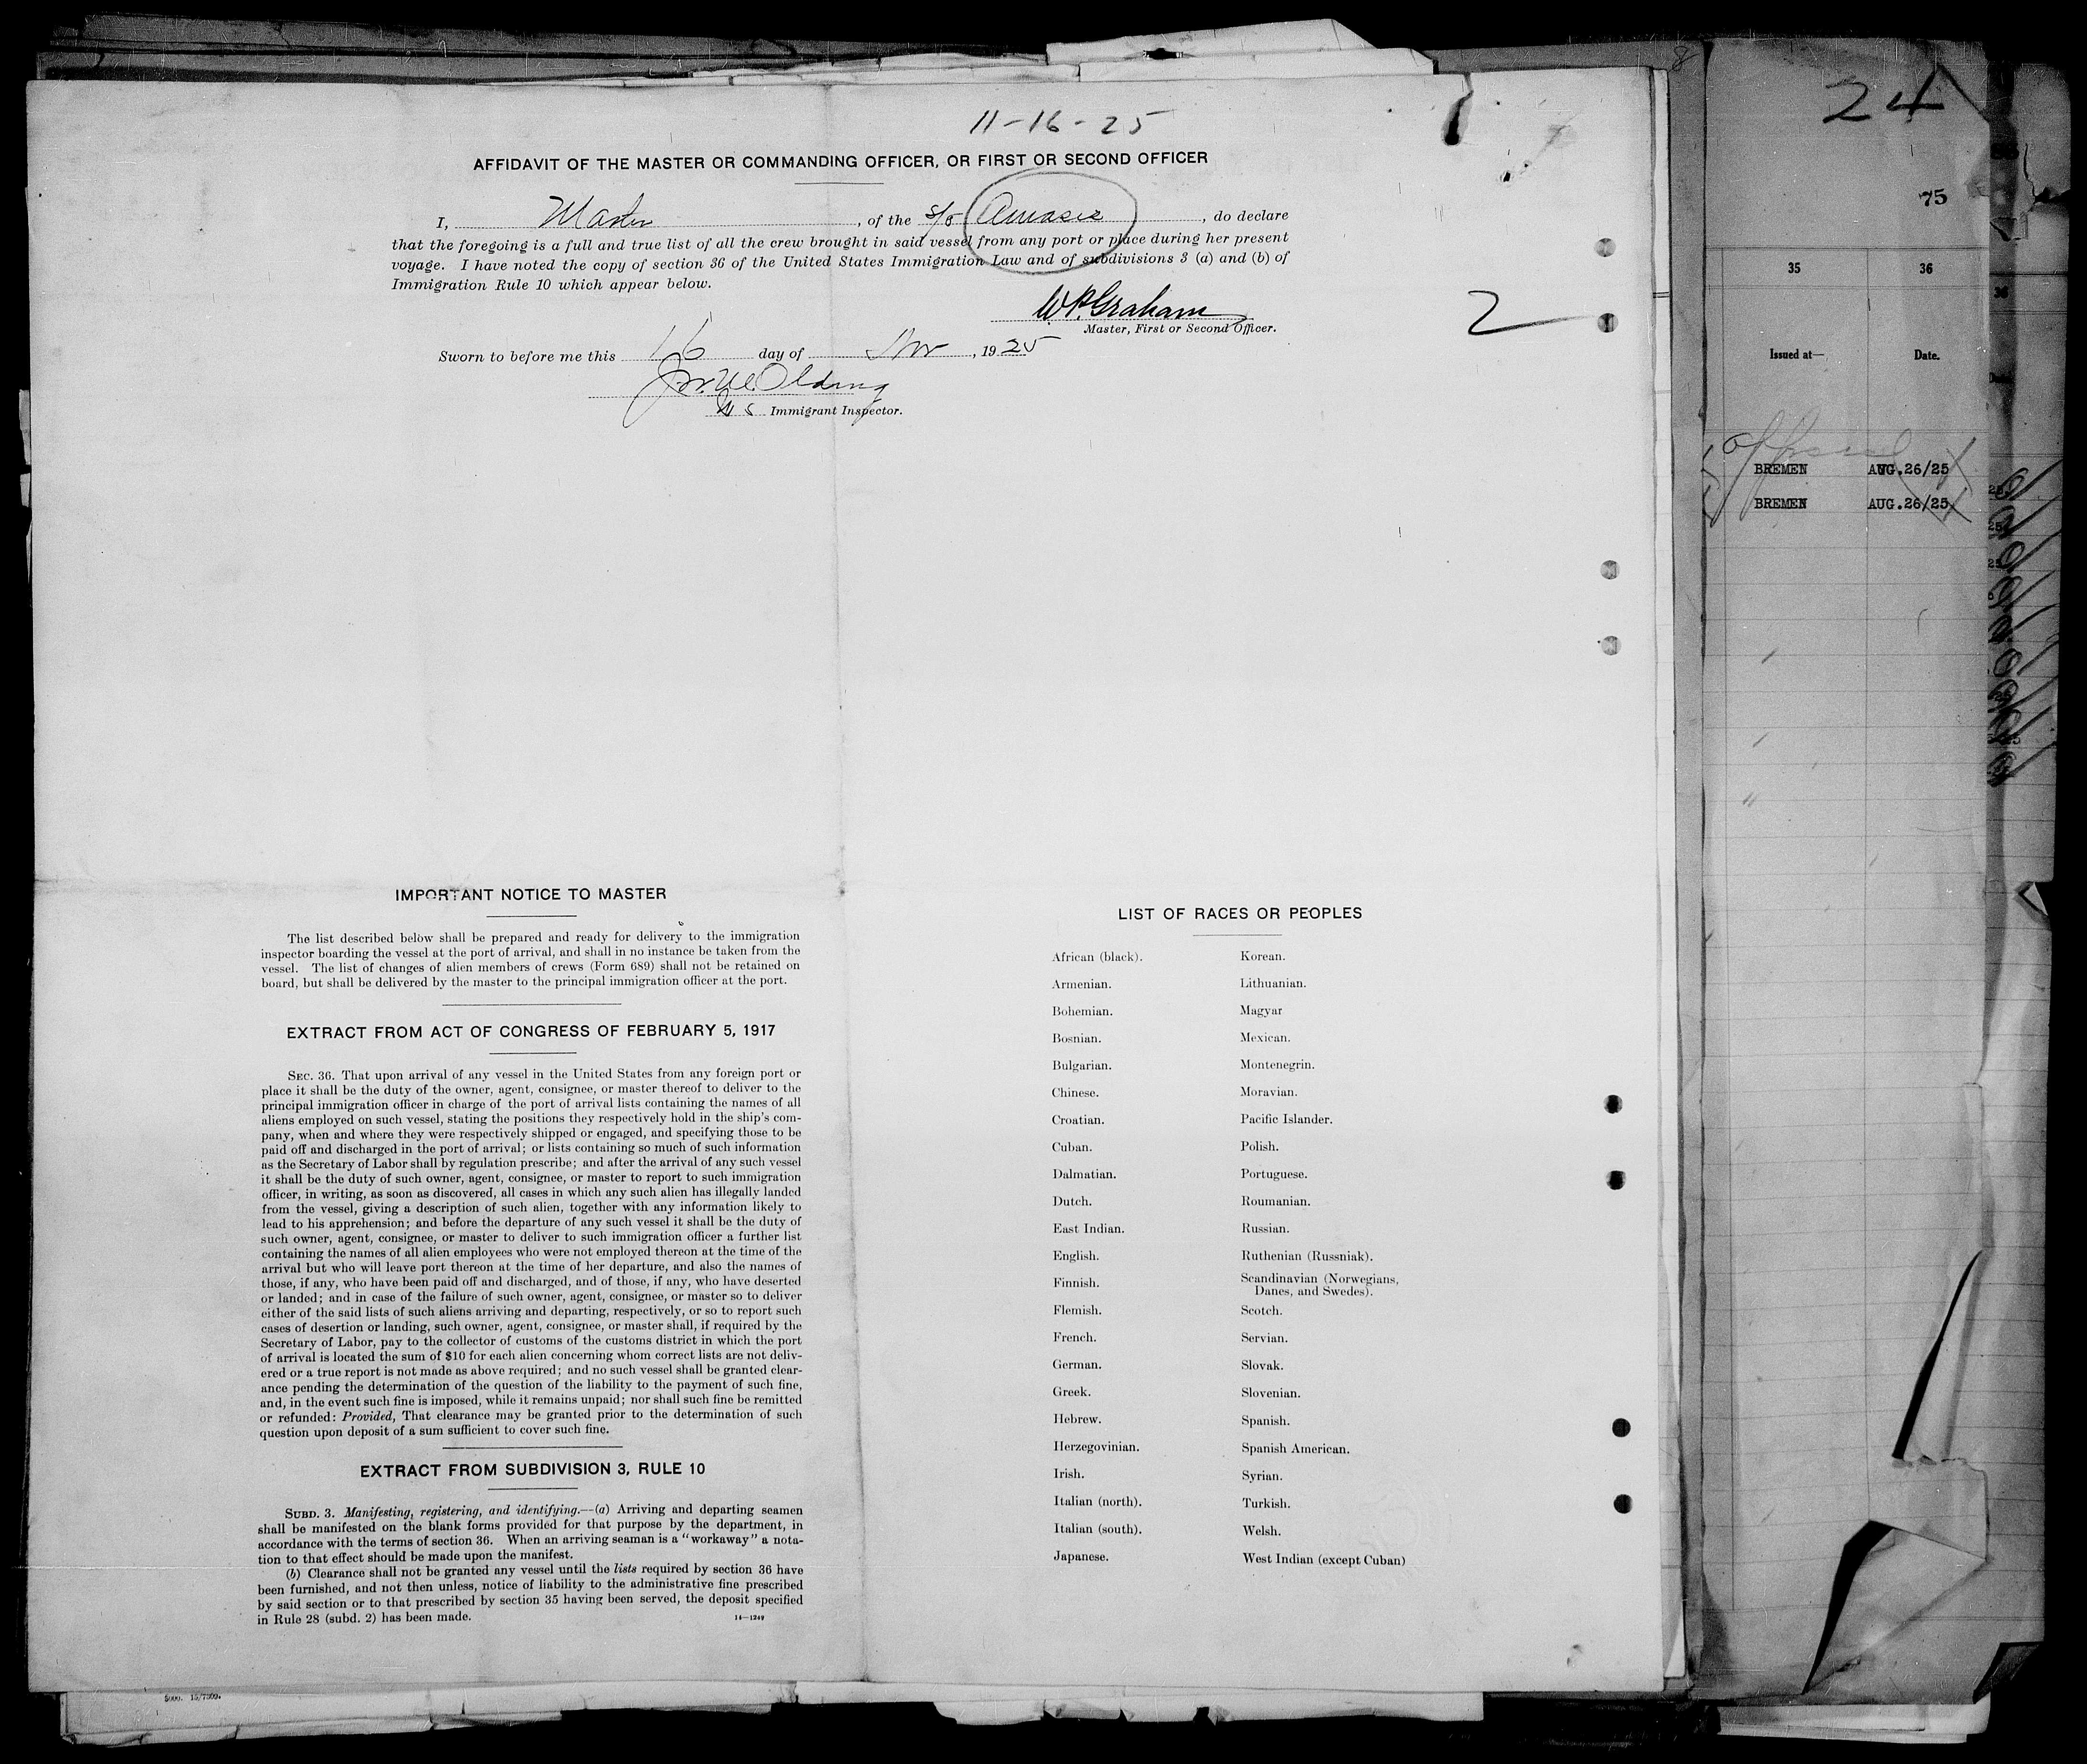 11-16-25
AFFIDAVIT OF THE MASTER OR COMMANDING OFFICER, OR FIRST OR SECOND OFFICER
I, Master, of the S/S Amasis, do declare
that the foregoing is a full and true list of all the crew brought in said vessel from any port or place during her present
voyage. I have noted the copy of section 36 of the United States Immigration Law and of subdivisions 3 (a) and (b) of
Immigration Rule 10 which appear below.
W.P. Graham
Master, First or Second Officer.
2
Sworn to before me this 16 day of Nov, 1925
Olding
U S Immigrant Inspector.
IMPORTANT NOTICE TO MASTER
The list described below shall be prepared and ready for delivery to the immigration
inspector boarding the vessel at the port of arrival, and shall in no instance be taken from the
vessel. The list of changes of alien members of crews (Form 689) shall not be retained on
board, but shall be delivered by the master to the principal immigration officer at the port.
EXTRACT FROM ACT OF CONGRESS OF FEBRUARY 5, 1917
SEC. 36. That upon arrival of any vessel in the United States from any foreign port or
place it shall be the duty of the owner, agent, consignee, or master thereof to deliver to the
principal immigration officer in charge of the port of arrival lists containing the names of all
aliens employed on such vessel, stating the positions they respectively hold in the ship's com-
pany, when and where they were respectively shipped or engaged, and specifying those to be
paid off and discharged in the port of arrival; or lists containing so much of such information
as the Secretary of Labor shall by regulation prescribe; and after the arrival of any such vessel
it shall be the duty of such owner, agent, consignee, or master to report to such immigration
officer, in writing, as soon as discovered, all cases in which any such alien has illegally landed
from the vessel, giving a description of such alien, together with any information likely to
lead to his apprehension; and before the departure of any such vessel it shall be the duty of
such owner, agent, consignee, or master to deliver to such immigration officer a further list
containing the names of all alien employees who were not employed thereon at the time of the
arrival but who will leave port thereon at the time of her departure, and also the names of
those, if any, who have been paid off and discharged, and of those, if any, who have deserted
or landed; and in case of the failure of such owner, agent, consignee, or master so to deliver
either of the said lists of such aliens arriving and departing, respectively, or so to report such
cases of desertion or landing, such owner, agent, consignee, or master shall, if required by the
Secretary of Labor, pay to the collector of customs of the customs district in which the port
of arrival is located the sum of $10 for each alien concerning whom correct lists are not deliv-
ered or a true report is not made as above required; and no such vessel shall be granted clear-
ance pending the determination of the question of the liability to the payment of such fine,
and, in the event such fine is imposed, while it remains unpaid; nor shall such fine be remitted
or refunded: Provided, That clearance may be granted prior to the determination of such
question upon deposit of a sum sufficient to cover such fine.
EXTRACT FROM SUBDIVISION 3, RULE 10
SUBD. 3. Manifesting, registering, and identifying.—(a) Arriving and departing seamen
shall be manifested on the blank forms provided for that purpose by the department, in
accordance with the terms of section 36. When an arriving seaman is a "workaway" a nota-
tion to that effect should be made upon the manifest.
(b) Clearance shall not be granted any vessel until the lists required by section 36 have
been furnished, and not then unless, notice of liability to the administrative fine prescribed
by said section or to that prescribed by section 35 having been served, the deposit specified
in Rule 28 (subd. 2) has been made.
14—1249
LIST OF RACES OR PEOPLES
African (black).
Armenian.
Bohemian.
Bosnian.
Bulgarian.
Chinese.
Croatian.
Cuban.
Dalmatian.
Dutch.
East Indian.
English.
Finnish.
Flemish.
French.
German.
Greek.
Hebrew.
Herzegovinian.
Irish.
Italian (north).
Italian (south).
Japanese.
Korean.
Lithuanian.
Magyar
Mexican.
Montenegrin.
Moravian.
Pacific Islander.
Polish.
Portuguese.
Roumanian.
Russian.
Ruthenian (Russniak).
Scandinavian (Norwegians,
Danes, and Swedes).
Scotch.
Servian.
Slovak.
Slovenian.
Spanish.
Spanish American.
Syrian.
Turkish.
Welsh.
West Indian (except Cuban)
8
24
75
35 36
Issued at— Date.
BREMEN AUG.26/25
BREMEN AUG.26/25